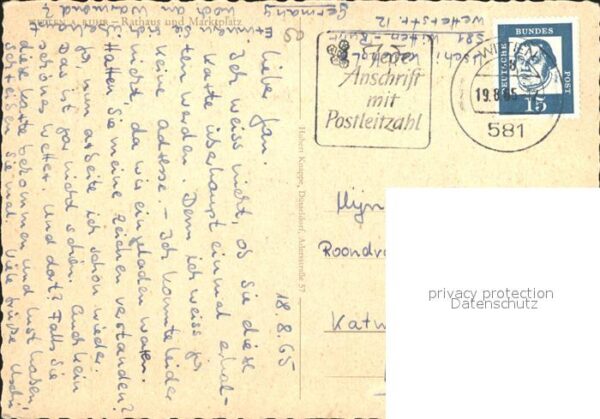 WITTEN A. RUHR – Rathaus und Marktplatz
Anschrift
mit
Postleitzahl
WITTEN
19.8.65
581
DEUTSCHE
BUNDES
POST
15
581 Witten - Ruhr
Germany
18.8.65
Lieber Jan.
Ich weiss nicht, ob Sie diese
Karte überhaupt einmal erhal-
ten werden. Denn ich weiss ja
keine Adresse. – Ich konnte leider
nicht, da wir eingeladen waren.
Hatten Sie meine Zeichen verstanden?
Ja, nun arbeite ich schon wieder.
Das ist gar nicht schön. Auch kein
schönes Wetter. Und dort? Falls Sie
diese Karte bekommen und Lust haben,
schreiben Sie mal. Viele Grüsse Uschi
Hubert Knippe, Düsseldorf, Adersstraße 57
Mijn
Roondv
Katw
privacy protection
Datenschutz